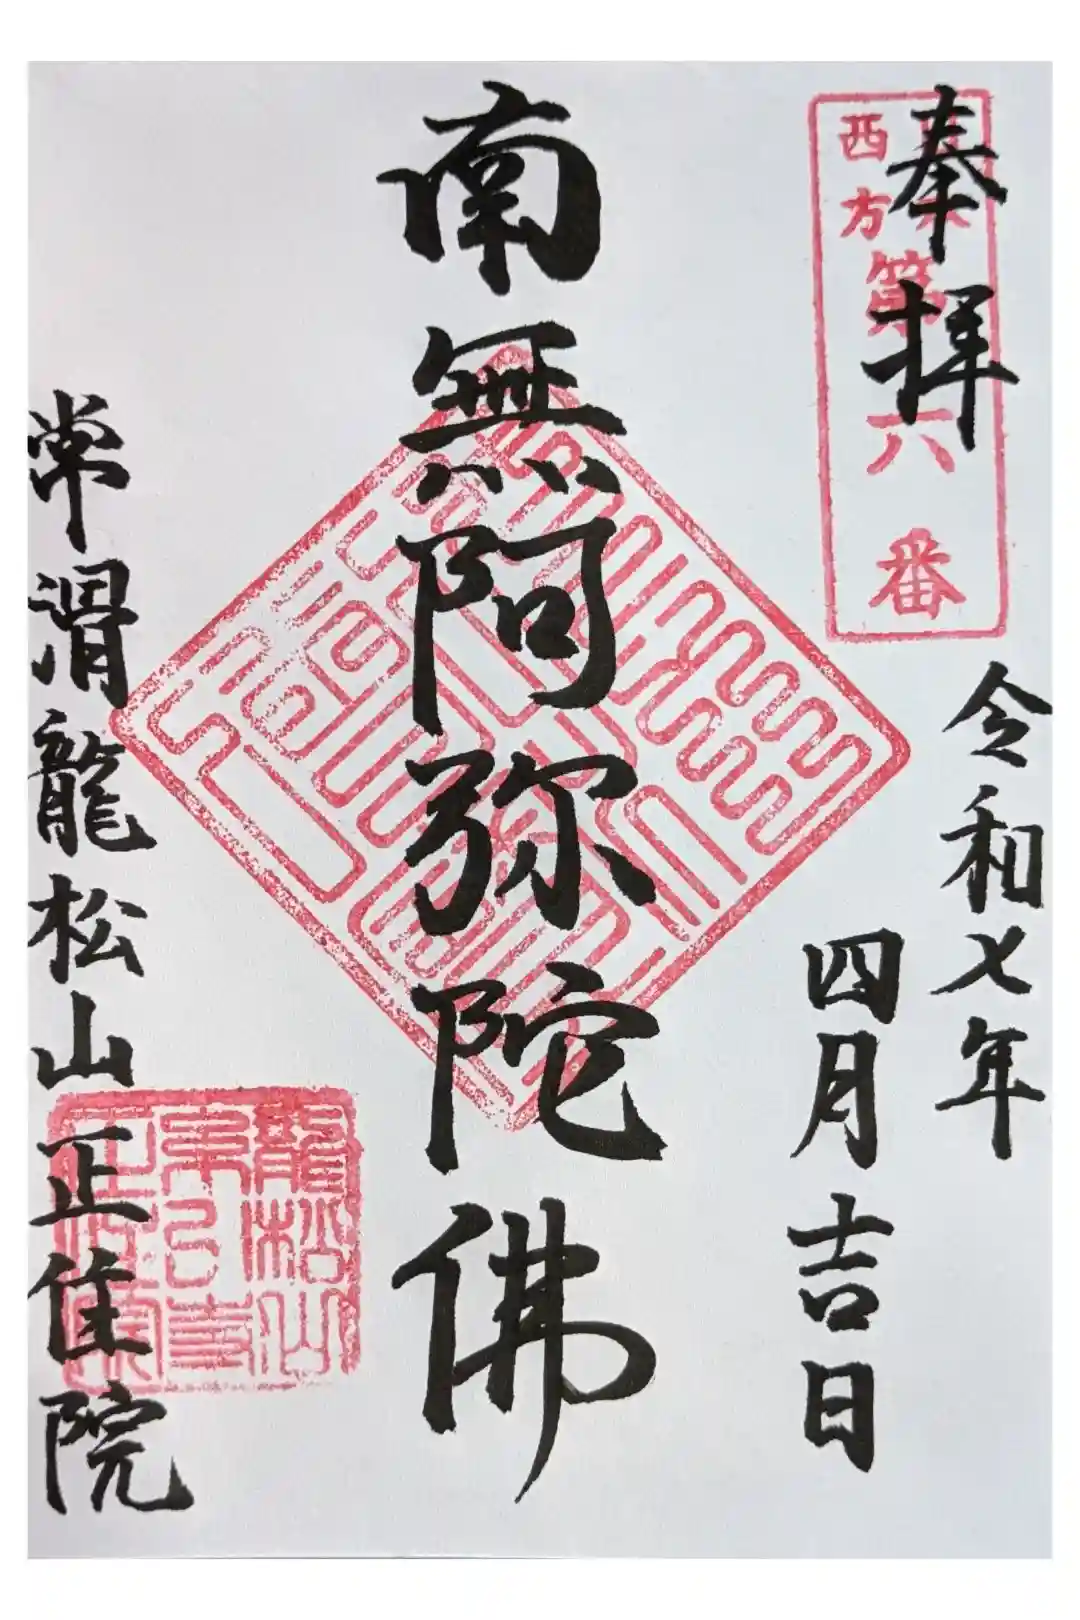 奉拝
西方
第六番
令和七年
四月吉日
南無阿弥陀佛
常滑龍松山正住院
龍松山